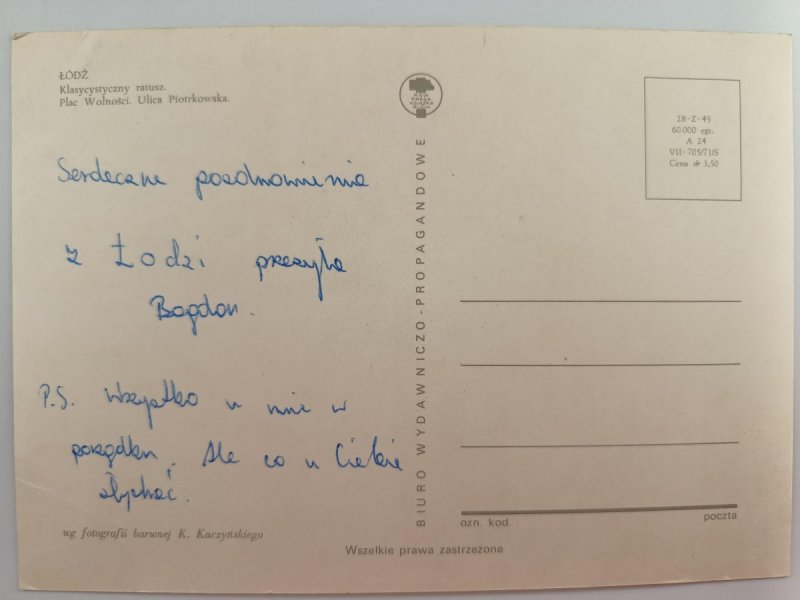 ŁÓDŹ
Klasycystyczny ratusz.
Plac Wolności. Ulica Piotrkowska.
RSW
PRASA
KSIĄŻKA
RUCH
28-Z-45
60'000 egz.
A 24
VII-705/71/S
Cena zł 3,50
Serdeczne pozdrowienia
z Łodzi przesyła
Bogdan.
P.S. Wszystko u mnie w
porządku. Ale co u Ciebie
słychać.
BIURO WYDAWNICZO-PROPAGANDOWE
ozn. kod.
poczta
wg fotografii barwnej K. Kaczyńskiego
Wszelkie prawa zastrzeżone